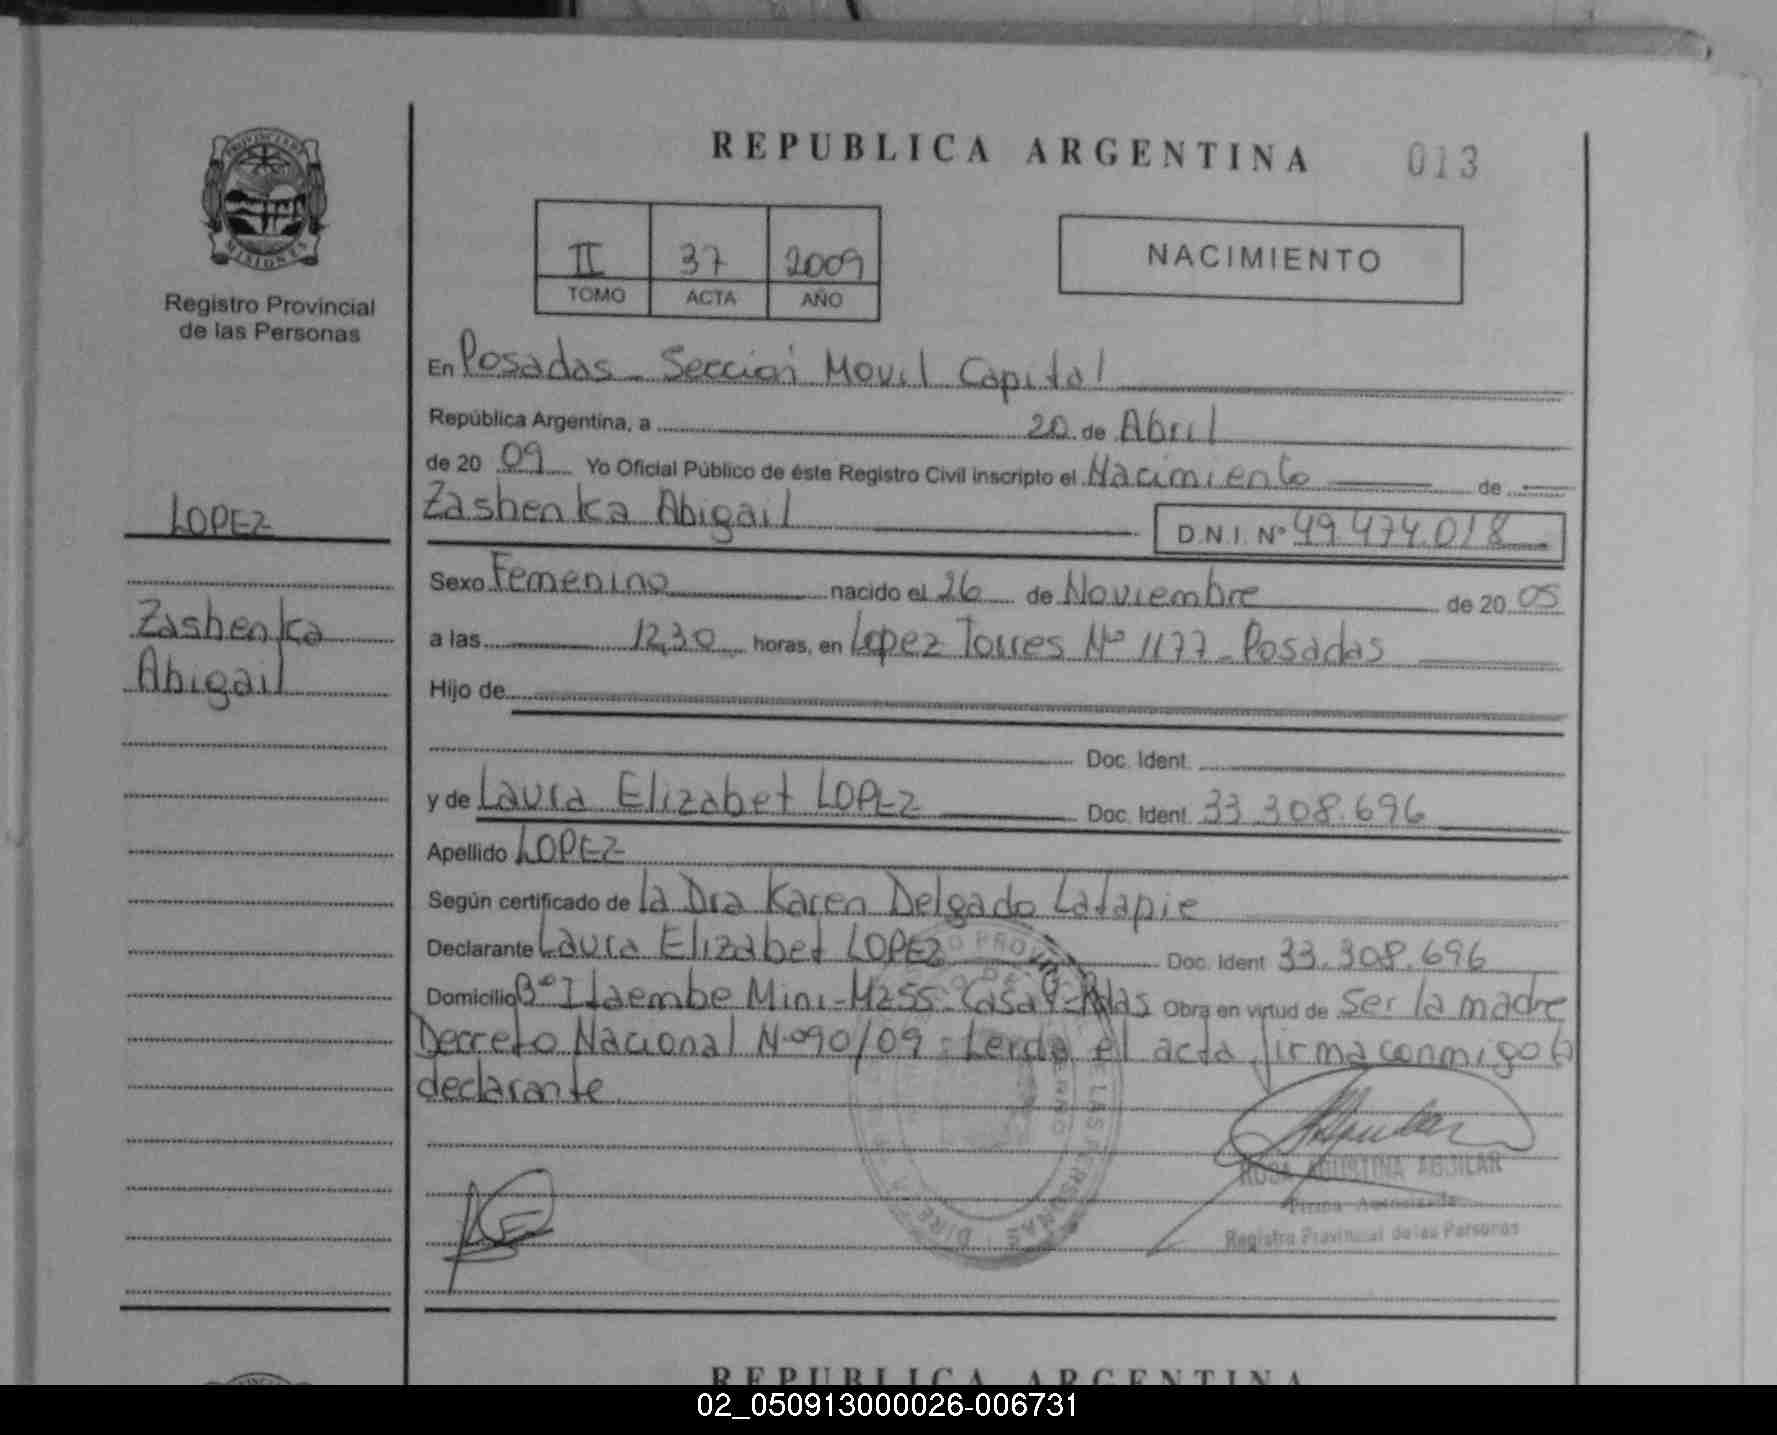 REPUBLICA ARGENTINA 013
PROVINCIA DE
MISIONES
Registro Provincial
de las Personas
II 37 2009
TOMO ACTA AÑO
NACIMIENTO
En Posadas - Sección Movil Capital
República Argentina, a 20 de Abril
de 20 09 Yo Oficial Público de éste Registro Civil inscripto el Nacimiento de
Zashenka Abigail D.N.I. Nº 49.474.018
LOPEZ
Zashenka
Abigail
Sexo Femenino nacido el 26 de Noviembre de 20 05
a las 12,30 horas, en Lopez Torres Nº 1177 - Posadas
Hijo de
Doc. Ident.
y de Laura Elizabet LOPEZ Doc. Ident. 33.308.696
Apellido LOPEZ
Según certificado de la Dra Karen Delgado Latapie
Declarante Laura Elizabet LOPEZ Doc. Ident. 33.308.696
Domicilio Bº Itaembe Mini - Mz 55 - Casa 9 - Pdas Obra en virtud de ser la madre
Decreto Nacional Nº 90/09 - Leida el acta firma conmigo la
declarante
ROSA AGUSTINA AGUILAR
Firma Autorizada
Registro Provincial de las Personas
REPUBLICA ARGENTINA
02_050913000026-006731